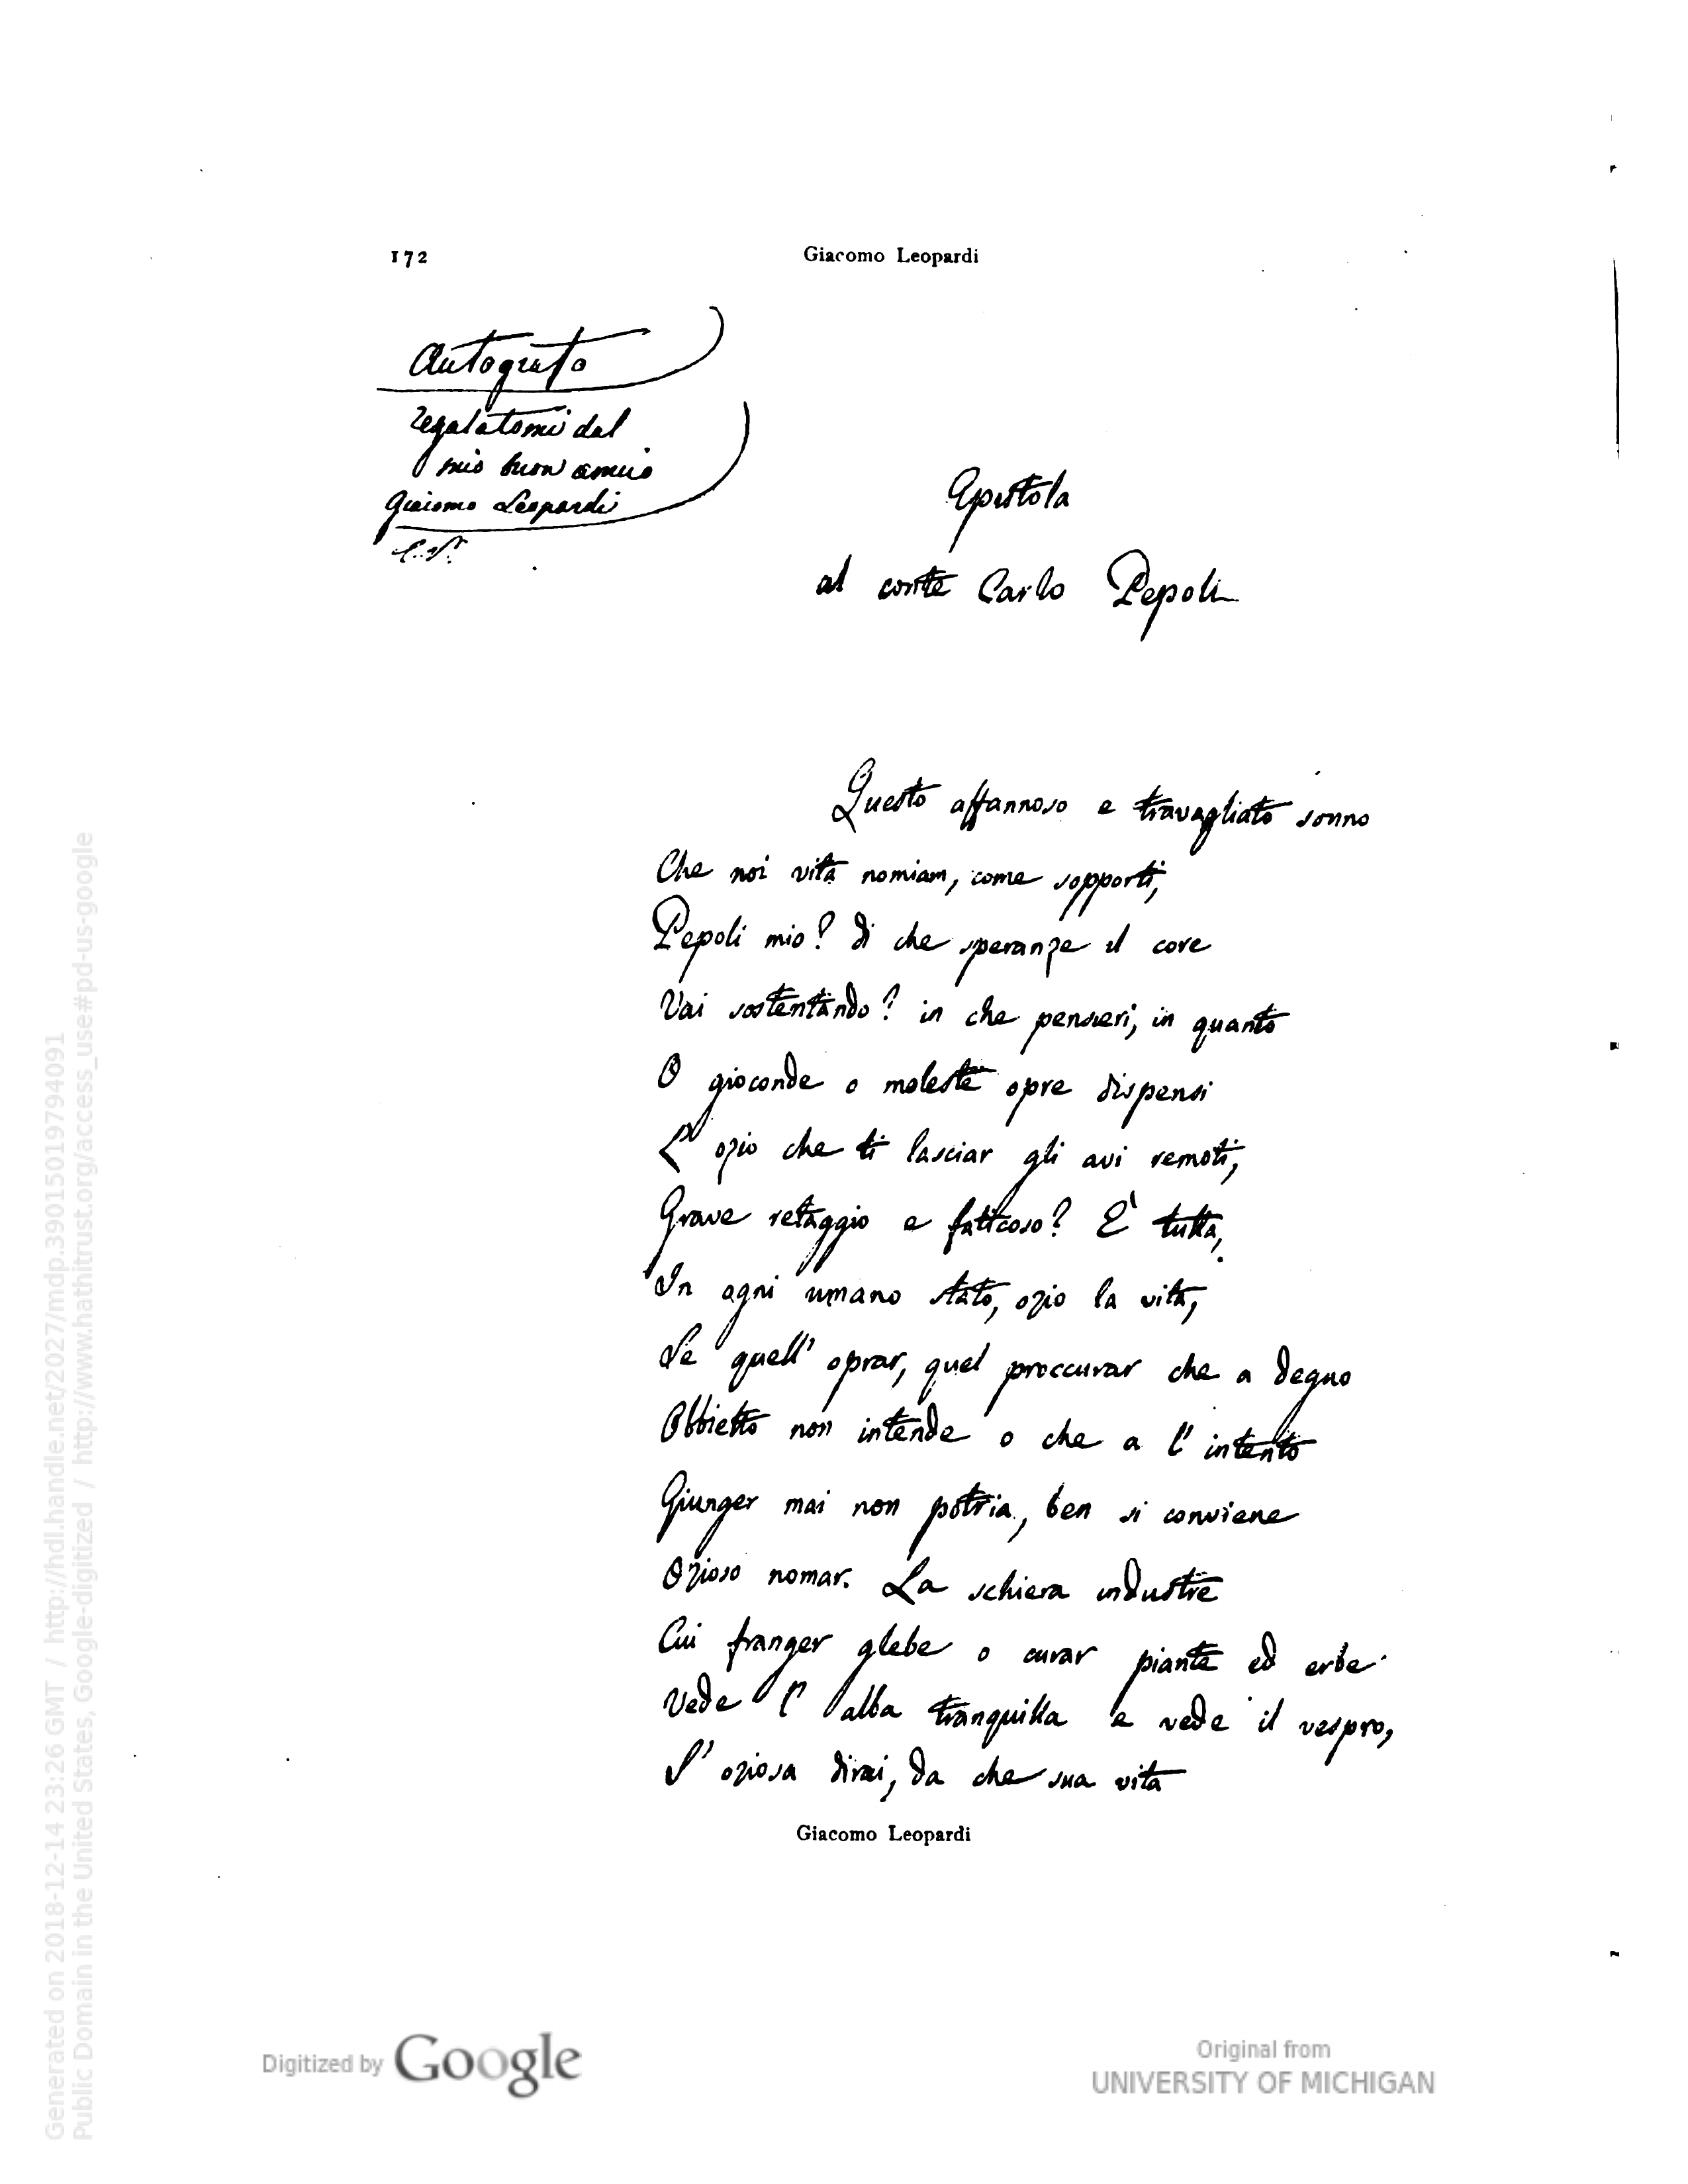 172
Giacomo Leopardi
Autografo
regalatomi dal
mio buon amico
Giacomo Leopardi
C. P.
Epistola
al conte Carlo Pepoli
Questo affannoso e travagliato sonno
Che noi vita nomiam, come sopporti,
Pepoli mio? di che speranze il core
Vai sostentando? in che pensieri, in quanto
O gioconde o moleste opre dispensi
L' ozio che ti lasciar gli avi remoti,
Grave retaggio e faticoso? E' tutta,
In ogni umano stato, ozio la vita,
Se quell' oprar, quel proccurar che a degno
Obbietto non intende o che a l' intento
Giunger mai non potria, ben si conviene
Ozioso nomar. La schiera industre
Cui franger glebe o curar piante ed erbe
Vede l' alba tranquilla e vede il vespro,
S' oziosa dirai, da che sua vita
Giacomo Leopardi
Generated on 2018-12-14 23:26 GMT / http://hdl.handle.net/2027/mdp.39015019794091
Public Domain in the United States, Google-digitized / http://www.hathitrust.org/access_use#pd-us-google
Digitized by Google
Original from
UNIVERSITY OF MICHIGAN